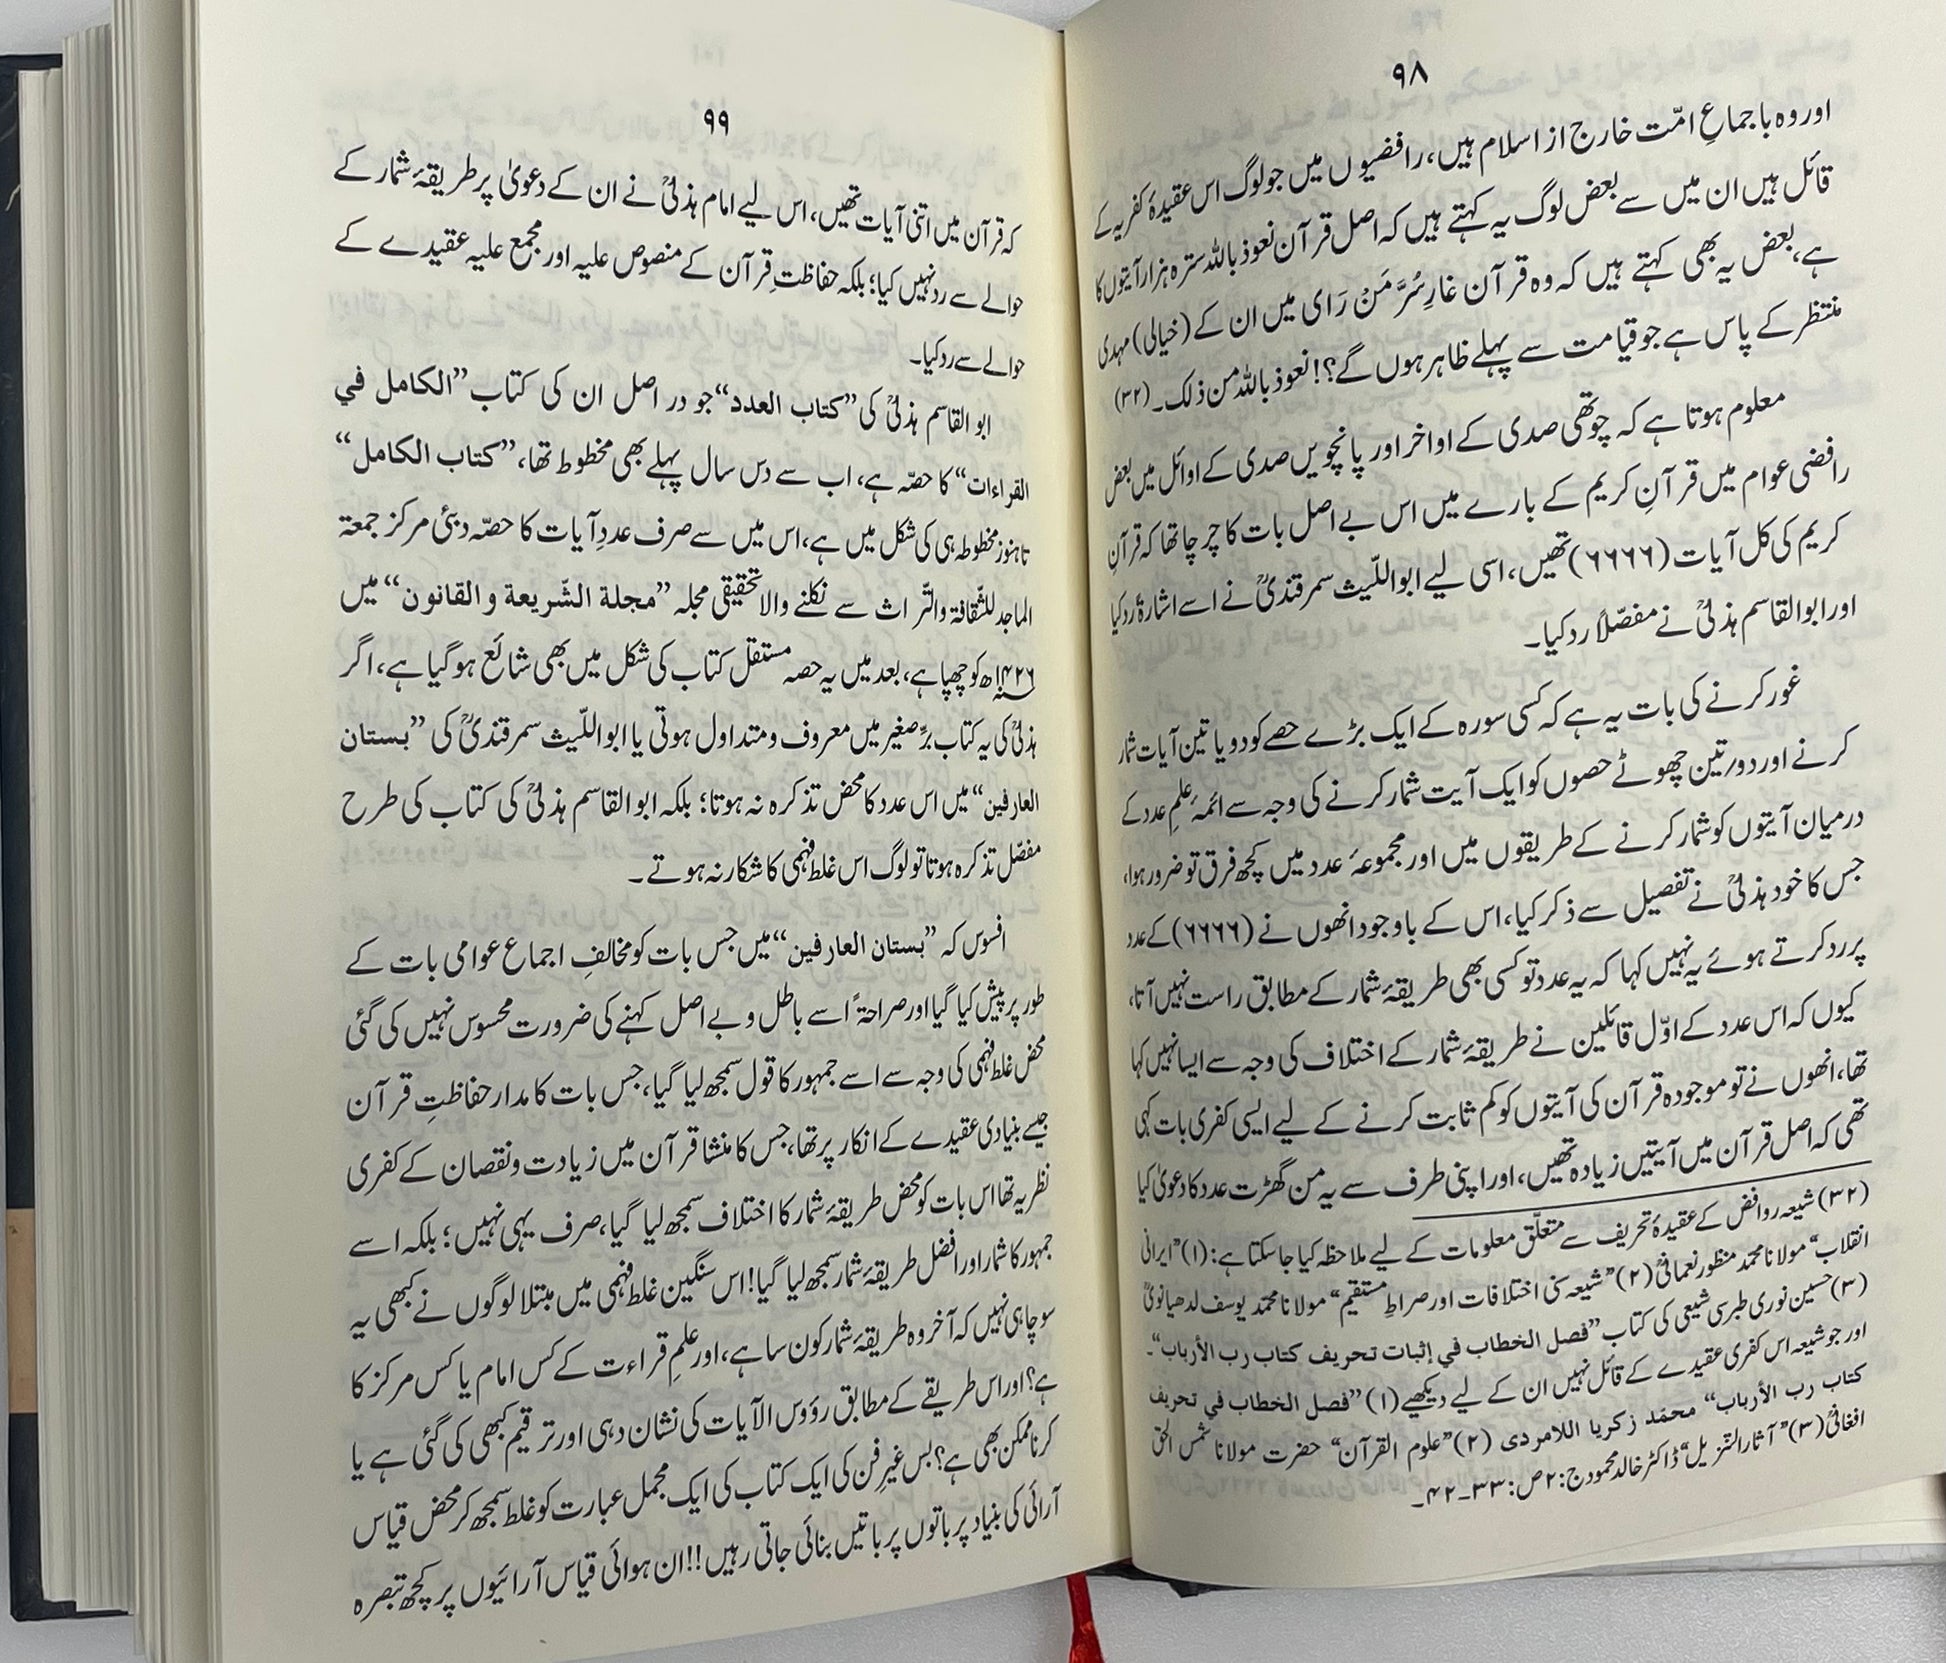 ۹۸
اور وہ باجماعِ امّت خارج از اسلام ہیں، رافضیوں میں جو لوگ اس عقیدۂ کفریہ کے
قائل ہیں ان میں سے بعض لوگ یہ کہتے ہیں کہ اصل قرآن نعوذ باللہ سترہ ہزار آیتوں کا
ہے، بعض یہ بھی کہتے ہیں کہ وہ قرآن غارِ سُرَّ مَنْ رَای میں ان کے (خیالی) مہدی
منتظر کے پاس ہے جو قیامت سے پہلے ظاہر ہوں گے؟! نعوذ باللہ من ذلک۔ (۳۲)
معلوم ہوتا ہے کہ چوتھی صدی کے اواخر اور پانچویں صدی کے اوائل میں بعض
رافضی عوام میں قرآنِ کریم کے بارے میں اس بے اصل بات کا چرچا تھا کہ قرآنِ
کریم کی کل آیات (۶۶۶۶) تھیں، اسی لیے ابو اللّیث سمرقندیؒ نے اسے اشارۃً رد کیا
اور ابو القاسم ہذلیؒ نے مفصّلاً رد کیا۔
غور کرنے کی بات یہ ہے کہ کسی سورہ کے ایک بڑے حصے کو دو یا تین آیات شمار
کرنے اور دو/تین چھوٹے حصوں کو ایک آیت شمار کرنے کی وجہ سے ائمۂ علمِ عدد کے
درمیان آیتوں کو شمار کرنے کے طریقوں میں اور مجموعۂ عدد میں کچھ فرق تو ضرور ہوا،
جس کا خود ہذلیؒ نے تفصیل سے ذکر کیا، اس کے باوجود انھوں نے (۶۶۶۶) کے عدد
پر رد کرتے ہوئے یہ نہیں کہا کہ یہ عدد تو کسی بھی طریقۂ شمار کے مطابق راست نہیں آتا،
کیوں کہ اس عدد کے اوّل قائلین نے طریقۂ شمار کے اختلاف کی وجہ سے ایسا نہیں کہا
تھا، انھوں نے تو موجودہ قرآن کی آیتوں کو کم ثابت کرنے کے لیے ایسی کفری بات کہی
تھی کہ اصل قرآن میں آیتیں زیادہ تھیں، اور اپنی طرف سے یہ من گھڑت عدد کا دعویٰ کیا
(۳۲) شیعہ روافض کے عقیدۂ تحریف سے متعلّق معلومات کے لیے ملاحظہ کیا جا سکتا ہے: (۱) ”ایرانی
انقلاب“ مولانا محمد منظور نعمانیؒ (۲) ”شیعہ سنی اختلافات اور صراطِ مستقیم“ مولانا محمد یوسف لدھیانویؒ
(۳) حسین نوری طبرسی شیعی کی کتاب ”فصل الخطاب في إثبات تحريف كتاب رب الأرباب“۔
اور جو شیعہ اس کفری عقیدے کے قائل نہیں ان کے لیے دیکھیے (۱) ”فصل الخطاب في تحريف
كتاب رب الأرباب“ محمّد زکریا اللامردی (۲) ”علوم القرآن“ حضرت مولانا شمس الحق
افغانیؒ (۳) ”آثار التنزیل“ ڈاکٹر خالد محمود ج: ۲ ص: ۳۳-۴۲۔
۹۹
کہ قرآن میں اتنی آیات تھیں، اس لیے امام ہذلیؒ نے ان کے دعویٰ پر طریقۂ شمار کے
حوالے سے رد نہیں کیا؛ بلکہ حفاظتِ قرآن کے منصوص علیہ اور مجمع علیہ عقیدے کے
حوالے سے رد کیا۔
ابو القاسم ہذلیؒ کی ”کتاب العدد“ جو در اصل ان کی کتاب ”الكامل في
القراءات“ کا حصّہ ہے، اب سے دس سال پہلے بھی مخطوط تھا، ”کتاب الکامل“
تا ہنوز مخطوطہ ہی کی شکل میں ہے، اس میں سے صرف عددِ آیات کا حصّہ دبئی مرکز جمعۃ
الماجد للثّقافۃ والتّراث سے نکلنے والا تحقیقی مجلہ ”مجلة الشّريعة والقانون“ میں
۱۴۲۶ھ کو چھپا ہے، بعد میں یہ حصہ مستقل کتاب کی شکل میں بھی شائع ہو گیا ہے، اگر
ہذلیؒ کی یہ کتاب برِّ صغیر میں معروف و متداول ہوتی یا ابو اللّیث سمرقندیؒ کی ”بستان
العارفین“ میں اس عدد کا محض تذکرہ نہ ہوتا؛ بلکہ ابو القاسم ہذلیؒ کی کتاب کی طرح
مفصّل تذکرہ ہوتا تو لوگ اس غلط فہمی کا شکار نہ ہوتے۔
افسوس کہ ”بستان العارفین“ میں جس بات کو مخالفِ اجماع عوامی بات کے
طور پر پیش کیا گیا اور صراحۃً اسے باطل و بے اصل کہنے کی ضرورت محسوس نہیں کی گئی
محض غلط فہمی کی وجہ سے اسے جمہور کا قول سمجھ لیا گیا، جس بات کا مدار حفاظتِ قرآن
جیسے بنیادی عقیدے کے انکار پر تھا، جس کا منشا قرآن میں زیادت و نقصان کے کفری
نظریہ تھا اس بات کو محض طریقۂ شمار کا اختلاف سمجھ لیا گیا، صرف یہی نہیں؛ بلکہ اسے
جمہور کا شمار اور افضل طریقۂ شمار سمجھ لیا گیا! اس سنگین غلط فہمی میں مبتلا لوگوں نے کبھی یہ
سوچا ہی نہیں کہ آخر وہ طریقۂ شمار کون سا ہے، اور علمِ قراءت کے کس امام یا کس مرکز کا
ہے؟ اور اس طریقے کے مطابق رؤوس الآیات کی نشان دہی اور ترقیم کبھی کی گئی ہے یا
کرنا ممکن بھی ہے؟ بس غیر فن کی ایک کتاب کی ایک مجمل عبارت کو غلط سمجھ کر محض قیاس
آرائی کی بنیاد پر باتوں پر باتیں بنائی جاتی رہیں!! ان ہوائی قیاس آرائیوں پر کچھ تبصرہ